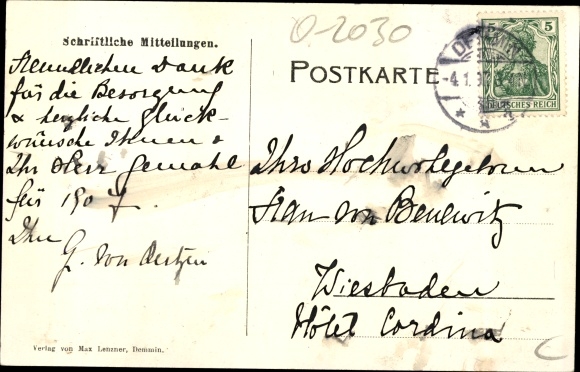 O-2030
Schriftliche Mitteilungen.
Freundlichen Dank
für die Besorgung
& herzliche Glück-
wünsche Ihnen &
Ihr Herr Gemahl
für 1907.
Ihre
G. von Oertzen
POSTKARTE
5 5
DEMMIN
-4.1.
DEUTSCHES REICH
Ihro Hochwohlgeboren
Frau von
Wiesbaden
Hôtel Cordina
Verlag von Max Lenzner, Demmin.